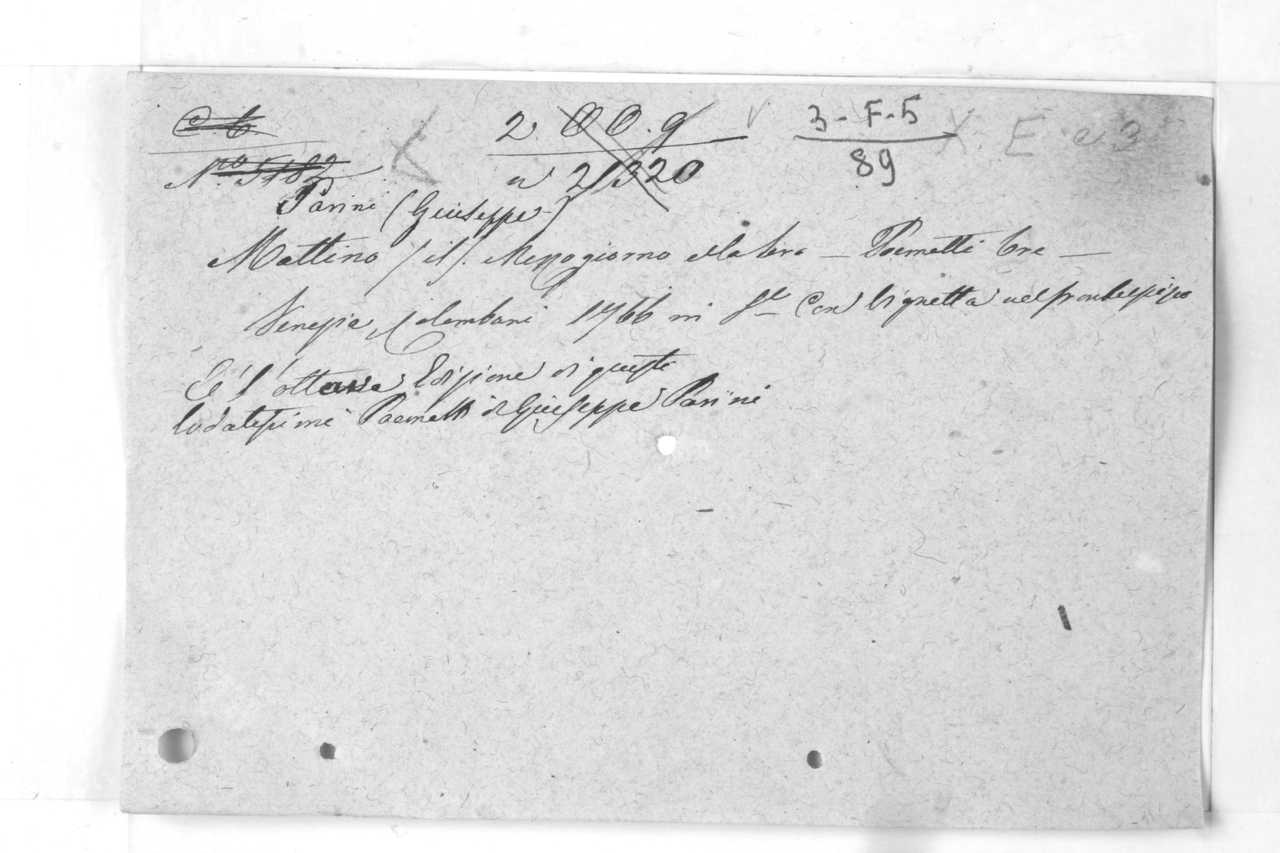 C b
2 OO. 9
3-F-5
X. E a 3
Nro 5182
a 21320
89
Parini (Giuseppe)
Mattino (il). Mezzogiorno e la sera — Poemetti tre —
Venezia, Colombani 1766 in 8º con vignetta nel frontespizio
È l'ottava Edizione di questi
lodatissimi Poemetti di Giuseppe Parini